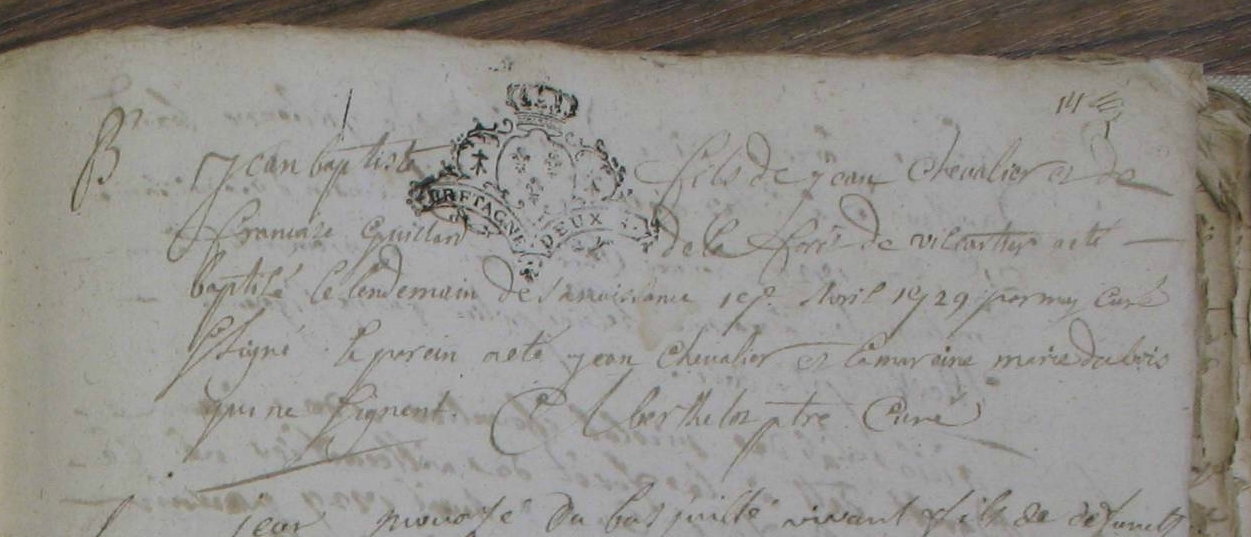 14
B
jean baptiste fils de jean Chevalier et de
BRETAGNE DEUX S
francoise Guillard de la forest de vilcartier a eté
baptisé le lendemain de sa naissance Avril 1729 par moy Curé
Ssigné le parein a eté jean Chevalier et la mareine marie dubois
qui ne signent. Berthelot ptre Curé
jean du bas vivant fils de defunct